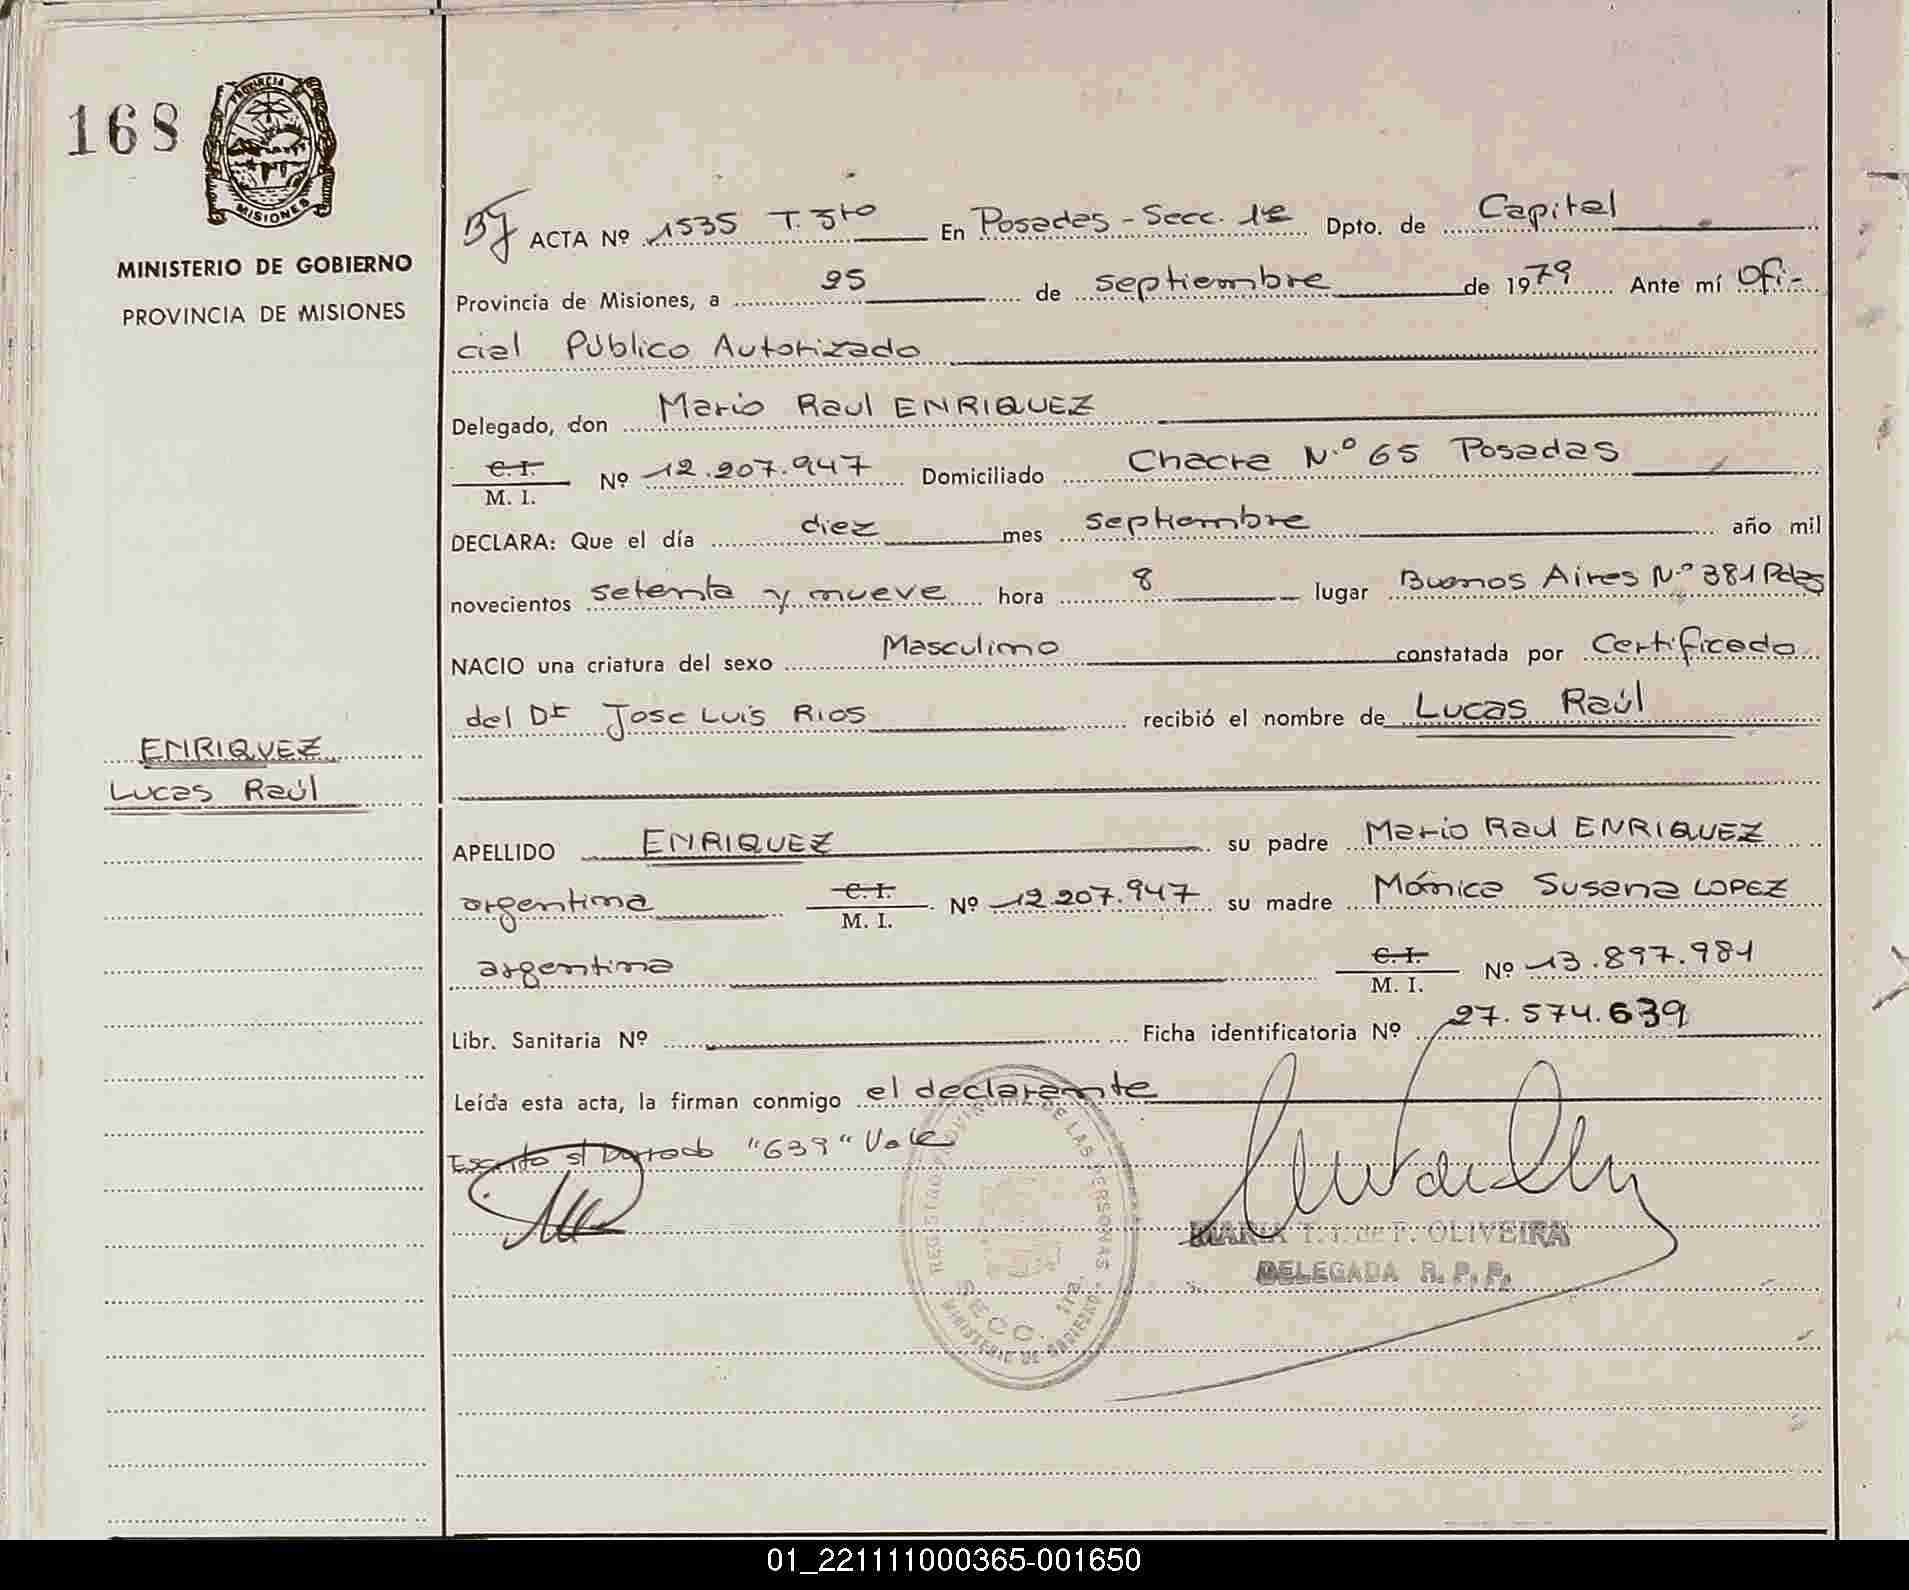 168
PROVINCIA DE
MISIONES
MINISTERIO DE GOBIERNO
PROVINCIA DE MISIONES
ACTA Nº 1535 T. 3ro En Posadas - Secc. 1ª Dpto. de Capital
Provincia de Misiones, a 25 de septiembre de 1979 Ante mí Ofi-
cial Público Autorizado
Delegado, don Mario Raul ENRIQUEZ
C. I.
M. I. Nº 12.207.947 Domiciliado Chacra N.º 65 Posadas
DECLARA: Que el día diez mes septiembre año mil
novecientos setenta y nueve hora 8 lugar Buenos Aires Nº 381 Pdas
NACIO una criatura del sexo Masculino constatada por Certificado
del Dr Jose Luis Rios recibió el nombre de Lucas Raúl
ENRIQUEZ
Lucas Raúl
APELLIDO ENRIQUEZ su padre Mario Raul ENRIQUEZ
argentina C. I.
M. I. Nº 12.207.947 su madre Mónica Susana LOPEZ
argentina C. I.
M. I. Nº 13.897.981
Libr. Sanitaria Nº Ficha identificatoria Nº 27.574.639
Leída esta acta, la firman conmigo el declarante
Escrito s/ borrado "639" Vale
REGISTRO PROVINCIAL DE LAS PERSONAS
SECC. 1ra.
MINISTERIO DE GOBIERNO
MARIA T. OLIVEIRA
DELEGADA R. P. P.
01_221111000365-001650